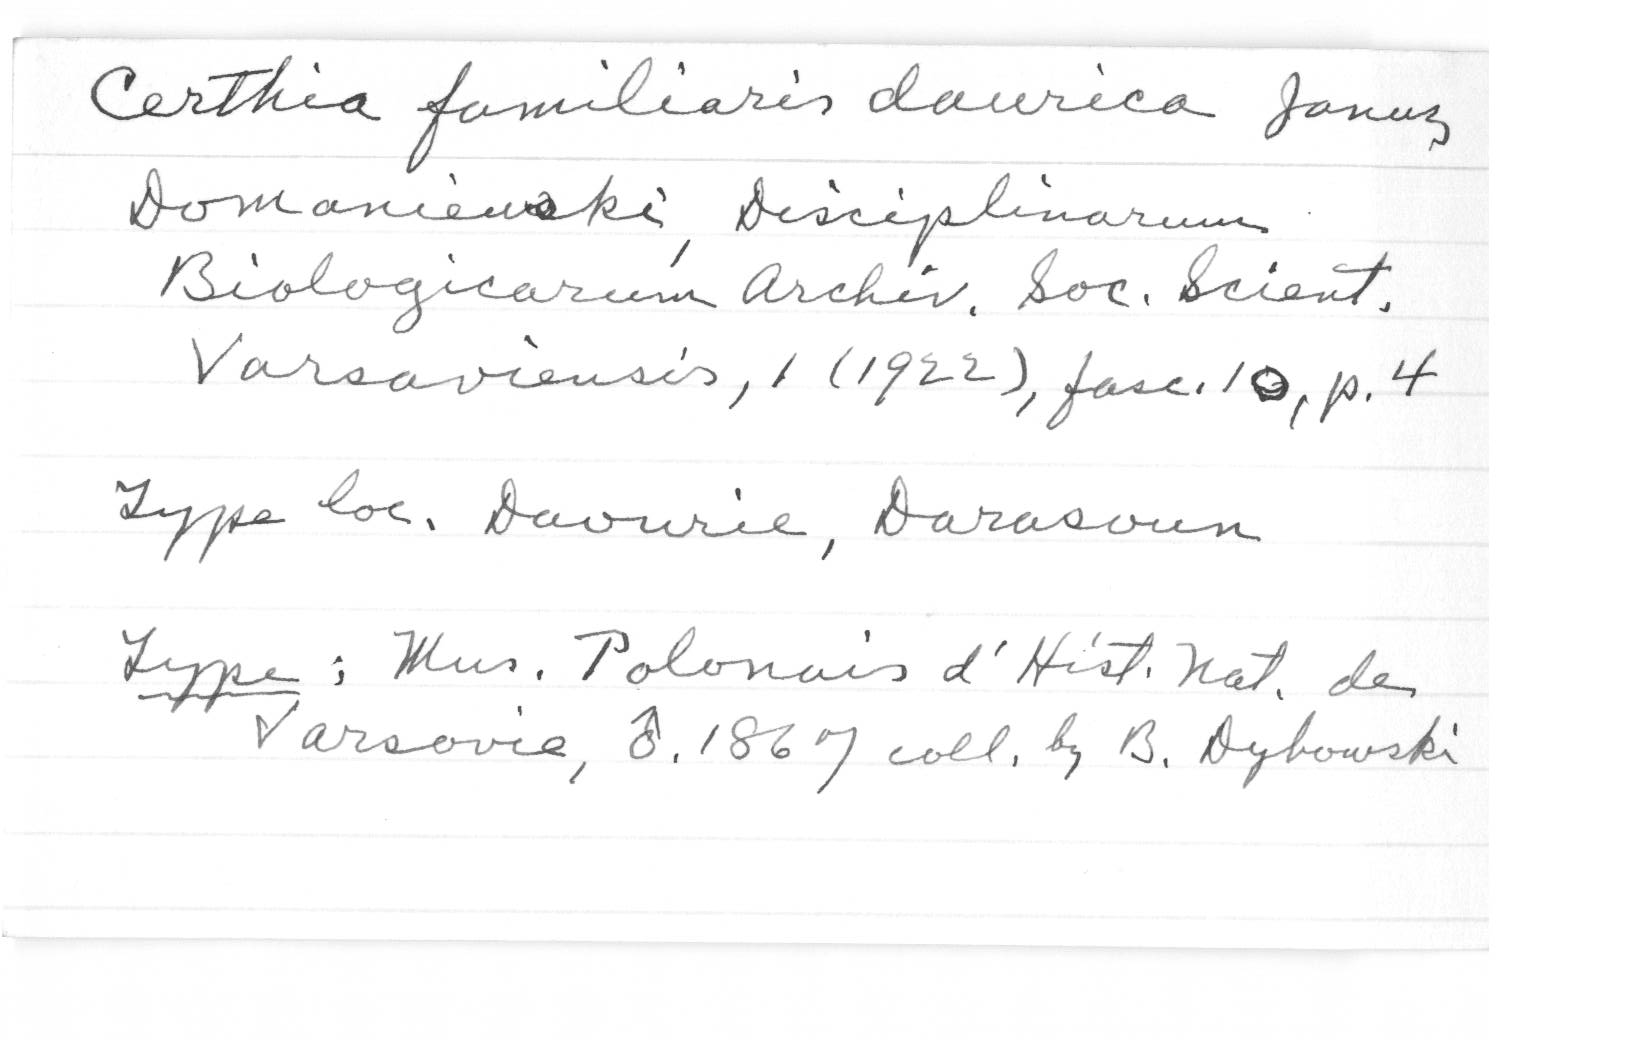 Certhia familiaris daurica Janusz
Domaniewski, Disciplinarum
Biologicarum Archiv. Soc. Scient.
Varsaviensis, 1 (1922), fasc. 10, p. 4
Type loc. Daourie, Darasoun
Type; Mus. Polonais d'Hist. Nat. de
Varsovie, ♂. 1867 coll. by B. Dybowski